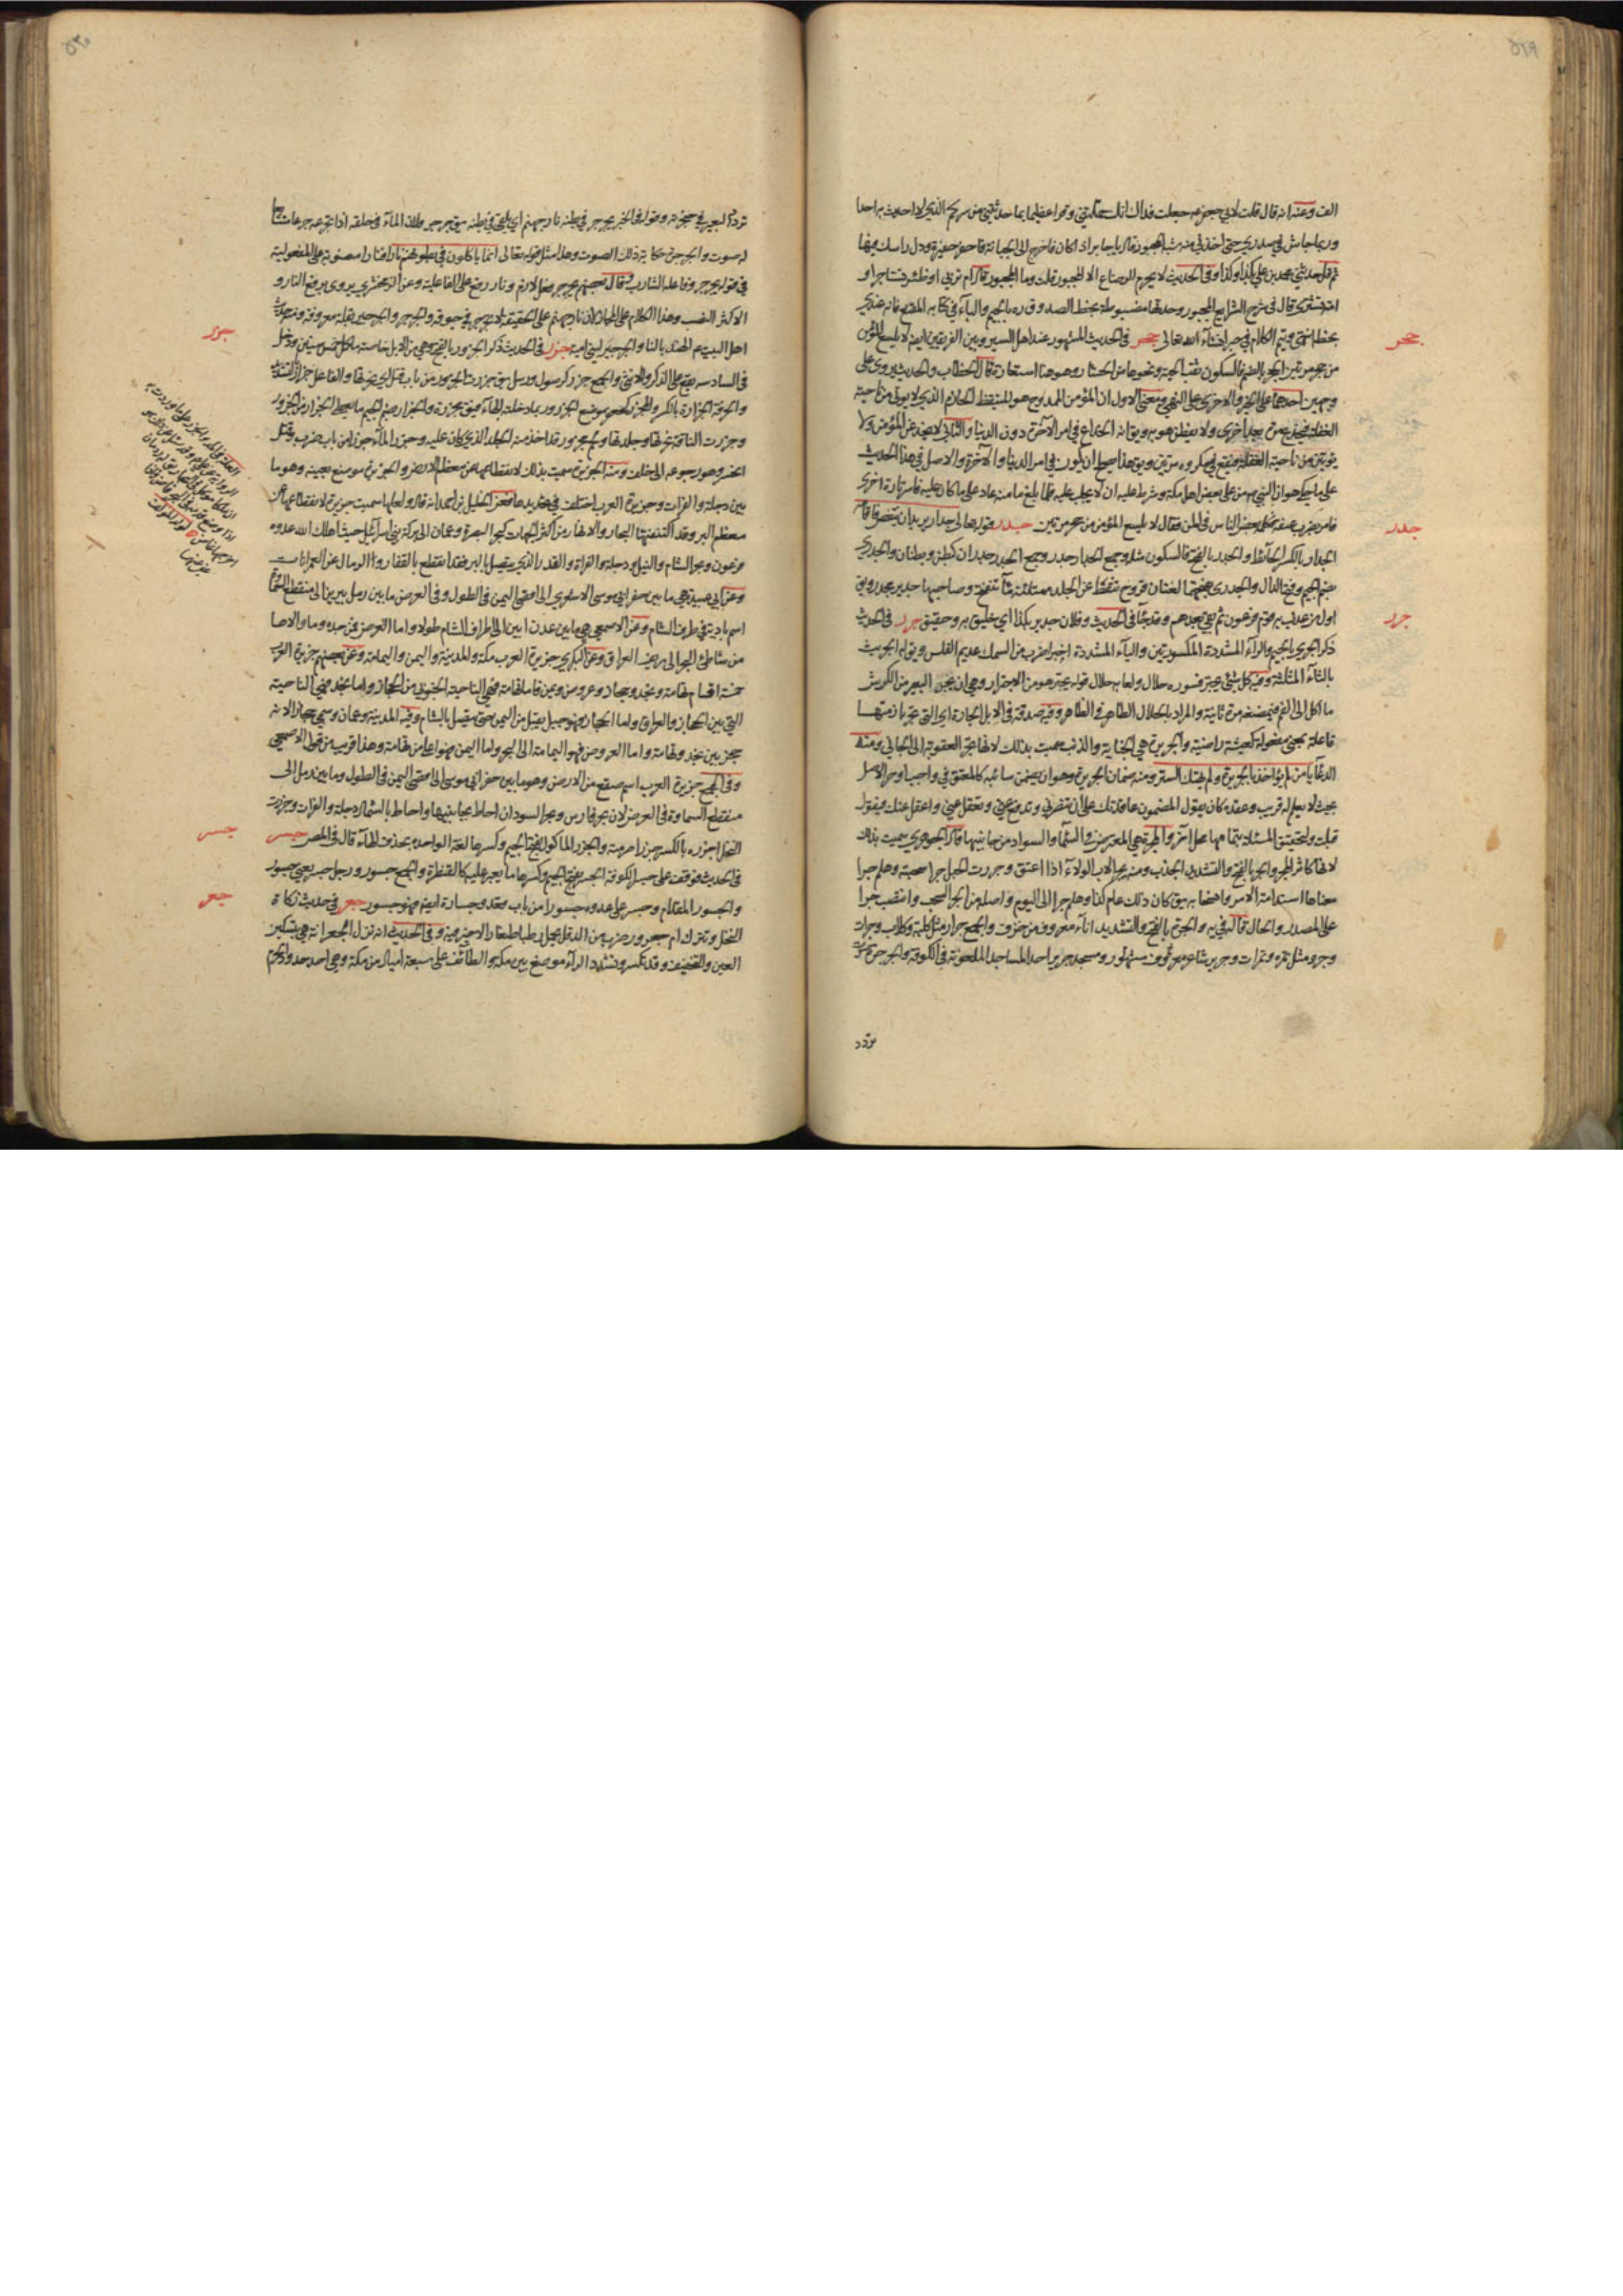 ٥٢٩
الف وعنه انه قال قلت لابي جعفر ع جعلت فداك انك حملتني وقرا عظيما بما حدثتني من سركم الذي لا احدث به احدا
وربما جاش في صدري حتى اخذني منه شبه الجنون قال يا جابر اذا كان فاخرج الى الجبانة فاحفر حفيرة ودل راسك فيها
ثم قل حدثني محمد بن علي بكذا وكذا وفي الحديث لا يحرم الرضاع الا المجبور قلت وما المجبور قال ام تربي او ظئر تستاجر او
امة تشترى قال في شرح الشرايع المجبور وجدتها مضبوطة بخط الصدوق ره بالجيم والباء في كتابه المقنع فانه عندي
بخطه انتهى ويتم الكلام في حبر انشاء الله تعالى جحر في الحديث المشهور عند اهل السير وبين الفريقين ايضا لا يلسع المؤمن
جحر
من جحر مرتين الجحر بالضم فالسكون ثقب الحية ونحوها من الحشار وهو هنا استعارة قال الخطاب والحديث يروى على
وجهين احدهما على الخبر والاخرى على النهي ومعنى الاول ان المؤمن الممدوح هو المتيقظ الحازم الذي لا يؤتى من ناحية
الغفلة فيخدع مرة بعد اخرى ولا يفطن هو به ويق انه الخداع في امر الآخرة دون الدنيا والثاني لا يخدعن المؤمن ولا
يؤتين من ناحية الغفلة فيقع في مكروه مرتين ويق هذا يصلح ان يكون في امر الدنيا والآخرة والاصل في هذا الحديث
على ما حكي هو ان النبي ص من على بعض اهل مكة وشرط عليه ان لا يجلب عليه فلما بلغ مامنه عاد على ما كان عليه فاسر تارة اخرى
فامر بضرب عنقه فكلمه بعض الناس في المن فقال لا يلسع المؤمن من جحر مرتين جدر قوله تعالى جدارا يريد ان ينقض فاقامه
جدر
الجدار بالكسر الحائط والجدر بالفتح فالسكون مثله وجمع الجدار جدر وجمع الجدر جدران كبطن وبطنان والجدري
بضم الجيم وفتح الدال والجدري بفتحهما لغتان قروح تنفط عن الجلد ممتلئة ماء تنفتح وصاحبها جدير مجدر ويق
اول من عذب به قوم فرعون ثم بقي بعدهم وقد جاء في الحديث وفلان جدير بكذا اي خليق به وحقيق جرر في الحديث
جرر
ذكر الجري بالجيم والراء المشددة المكسورتين والياء المشددة اخيرا ضرب من السمك عديم الفلس ويق له الجريث
بالثاء المثلثة وفيه كل شئ يجتر فسوره حلال ولعابه حلال قوله يجتر هو من الاجترار وهي ان يجر البعير من الكرش
ما اكل الى الفم فيمضغه مرة ثانية والمراد بالحلال الطاهر في الظاهر وفيه صدقة في الابل الجارة اي التي تجر بازمتها
فاعلة بمعنى مفعولة كعيشة راضية والجريرة هي الجناية والذنب سميت بذلك لانها تجر العقوبة الى الجاني ومنه
الدعاء يا من لم يؤاخذ بالجريرة ولم يهتك الستر ومنه ضمان الجريرة وهو ان يضمن سائبة كالمعتق في واجب او حر الاصل
بحيث لا يعلم له قريب وعقده كان يقول المضمون عاقدتك على ان تنصرني وتدفع عني وتعقل عني واعقل عنك فيقول
قبلت ولتحقيق المسئلة بتمامها محل آخر والمجرة هي المعترض في السماء والسواد من جانبيها قال الجوهري سميت بذلك
لانها كاثر المجر والجر بالفتح والتشديد الجذب ومنه يجر الاب الولاء اذا اعتق وجررت الحبل جرا سحبته وهلم جرا
معناها استدامة الامر واتصاله يق كان ذلك عام كذا وهلم جرا الى اليوم واصله من الجر السحب وانتصب جرا
على المصدر او الحال قاله في يه والجرة بالفتح والتشديد اناء معروف من خزف والجمع جرار مثل كلبة وكلاب وجرات
وجر ومثل تمرة وتمرات وجرير شاعر معروف مشهور ومسجد جرير احد المساجد الملعونة في الكوفة والجرجرة صوت
تردد
٥٣٠
تردد البعير في حنجرته وقوله في الخبر يجرجر في بطنه نار جهنم اي يلقي في بطنه يق جرجر فلان الماء في حلقه اذا تجرعه جرعا متتابعا
له صوت والجرجرة حكاية ذلك الصوت وهذا مثل قوله تعالى انما ياكلون في بطونهم نارا فنارا منصوبة على المفعولية
في قوله يجرجر وفاعله الشارب وقال بعضهم يجرجر فعل لازم ونار رفع على الفاعلية وعن الزمخشري يروى برفع النار و
الاكثر النصب وهذا الكلام على المجاز لان نار جهنم على الحقيقة لا تجرجر في جوفه والجرجر والجرجير بقلة معروفة ومن حديث
اهل البيت ع الهندباء لنا والجرجير لبني امية جزر في الحديث ذكر الجزور بالفتح وهي من الابل خاصة ما كمل خمس سنين ودخل
جزر
في السادسة يقع على الذكر والانثى والجمع جزر كرسول ورسل يق جزرت الجزور من باب قتل اي نحرتها والفاعل جزار بالتشديد
والحرفة الجزارة بالكسر والمجزر كمجلس موضع الجزر وربما دخلته الهاء فيق مجزرة والجزار بضم الجيم ما يعطى الجزار من الجزور
وجزرت الناقة نحرتها وجلدتها وجزر الماء جزرا من باب ضرب وقتل
انحسر وهو رجوعه الى خلف ومنه الجزيرة سميت بذلك لانقطاعها عن معظم الارض والجزيرة موضع بعينه وهو ما
بين دجلة والفرات وجزيرة العرب اختلف في تحديدها فعن الخليل بن احمد انه قال ولعلها سميت جزيرة لانقطاعها عن
معظم البر وقد اكتنفتها البحار والانهار من اكثر الجهات كبحر البصرة وعمان الى بركة بني اسرائيل حيث اهلك الله عدوه
فرعون وبحر الشام والنيل ودجلة والفراة والقدر الذي يتصل بالبر فقد انقطع بالقفار والرمال عن العمرانات
وعن ابي عبيدة هي ما بين حفر ابي موسى الاشعري الى اقصى اليمن في الطول وفي العرض ما بين رمل يبرين الى منقطع السماوة
اسم بادية في طرف الشام وعن الاصمعي هي ما بين عدن ابين الى اطراف الشام طولا واما العرض فمن جده وما والاها
من شاطئ البحر الى ريف العراق وعن البكري جزيرة العرب مكة والمدينة واليمن واليمامة وعن بعضهم جزيرة العرب
خمسة اقسام تهامة ونجد وحجاز وعروض ويمن فاما تهامة فهي الناحية الجنوبي من الحجاز واما نجد فهي الناحية
التي بين الحجاز والعراق واما الحجاز فهو جبل يقبل من اليمن حتى يتصل بالشام وفيه المدينة وعمان وسمي حجازا لانه
حجز بين نجد وتهامة واما العروض فهو اليمامة الى البحر واما اليمن فهو اعلى من تهامة وهذا قريب من قول الاصمعي
وفي المجمع جزيرة العرب اسم صقع من الارض وهو ما بين حفر ابي موسى الى اقصى اليمن في الطول وما بين رمل الى
منقطع السماوة في العرض لان بحر فارس وبحر السودان احاط بجانبيها واحاط بالشمال دجلة والفرات وجزرت
النخل اجزره بالكسر جزرا صرمته والجزر الماكول بفتح الجيم وكسرها لغة الواحدة بحذف الهاء قال في المصر جسر
جسر
في الحديث فوقف على جسر الكوفة الجسر بفتح الجيم وكسرها ما يعبر عليه كالقنطرة والجمع جسور ورجل جسر يعني جسور
والجسور المقدام وجسر على عدوه جسورا من باب قعد وجسارة ايضا فهو جسور جعر في حديث زكاة
جعر
النخل وتترك ام جعرور ضرب من الدقل يحمل رطبا صغارا لا خير فيه وفي الحديث انه نزل الجعرانة هي بتسكين
العين والتخفيف وقد تكسر وتشدد الراء موضع بين مكة والطائف على سبعة اميال من مكة وهي احد حدود الحرم